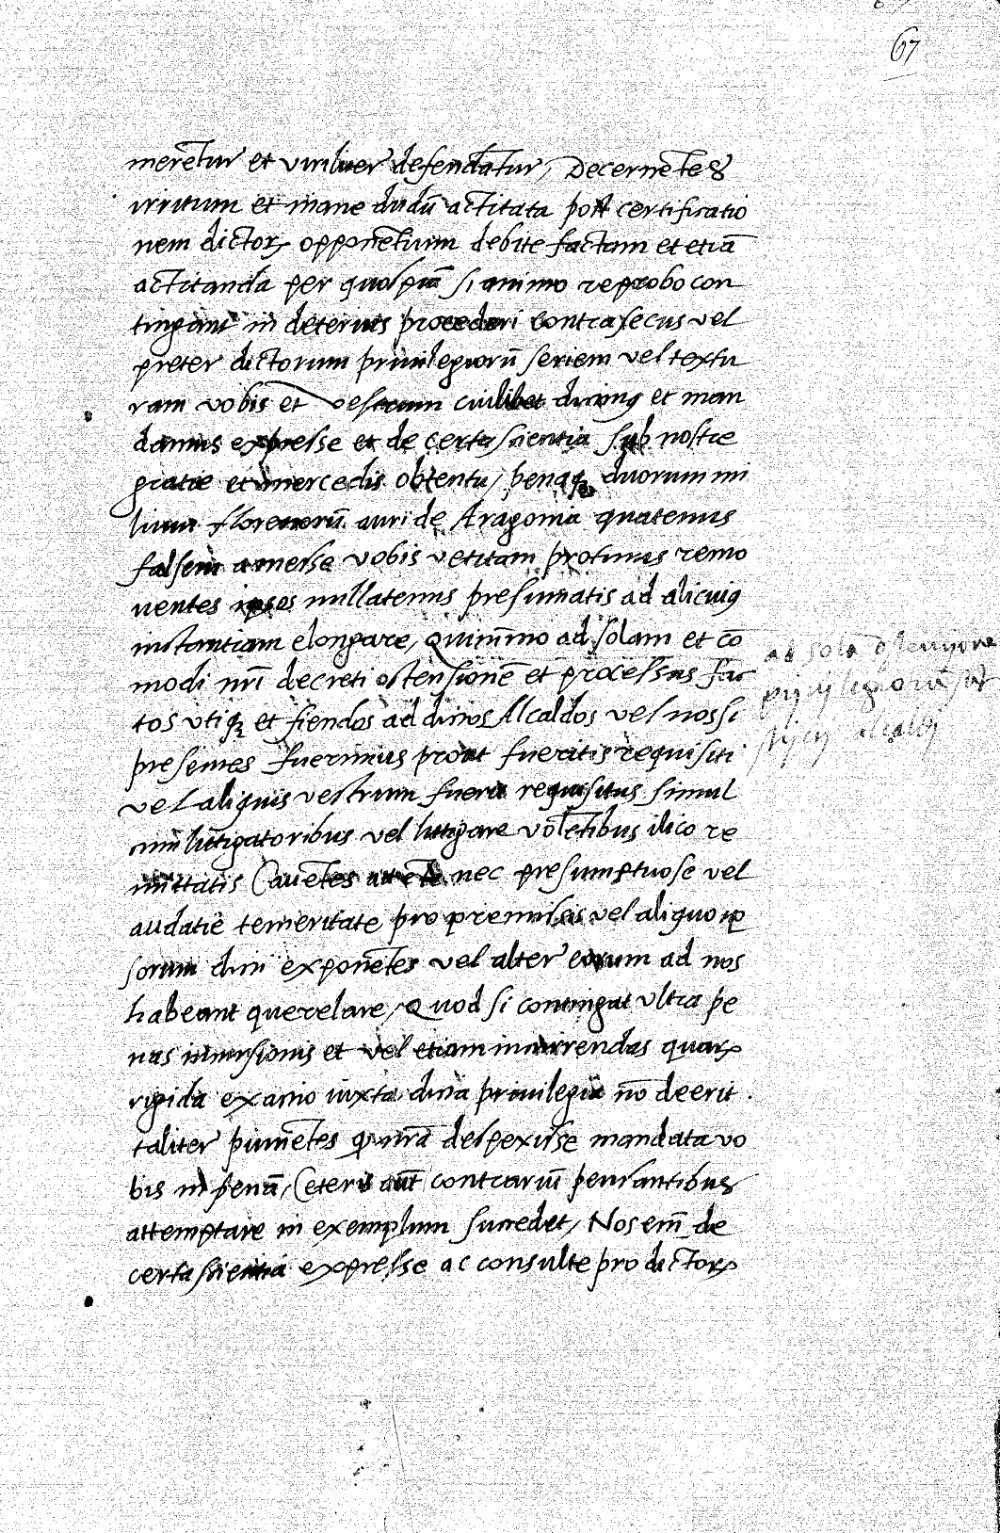 67
meretur et viriliter defendatur, Decernētes
irritum et inane dudū actitata post certificatio
nem dictoꝝ opponētium debite factam et etiā
actitanda per quospiā si animo reprobo con
tingant in deterius procederi contrasecus vel
preter dictorum privilegiorū seriem vel textu
ram vobis et vestrum cuilibet dicimꝰ et man
damus expresse et de certa scientia sub nostre
gratie et mercedis obtentu, penaqꝫ duorum mi
lium florenorū auri de Aragonia quatenus
falsem a messe vobis vetitam protinus remo
uentes ipsos nullatenus presumatis ad alicuiꝰ
instantiam elongare, Quimmo ad solam et cō
modi nr̄i decreti ostensionē et processus fac
tos vtiqꝫ et fiendos ad dictos Alcaldos vel nos si
presentes fuerimus prout fueritis requisiti
vel aliquis vestrum fuerit requisitus simul
cum litigatoribus vel litigare volētibus ilico re
mittatis Cauētes attētē nec presumptuose vel
audatie temeritate pro premissis vel aliquo ip
sorum dicti exponētes vel alter eorum ad nos
habeant querelare, Quod si contingat vltra pe
nas incursionis et vel etiam incurrendas quaꝝ
rigida exactio iuxta dicta privilegia nō deerit
taliter puniētes qui nr̄a despexisse mandata vo
bis in penā, Ceteris aūt contrariū pensantibus
attemptare in exemplum succedet, Nos em̄ de
certa scientia expresse ac consulte pro dictoꝝ
ad solā ostensionē
privilegiorū
alcaldos